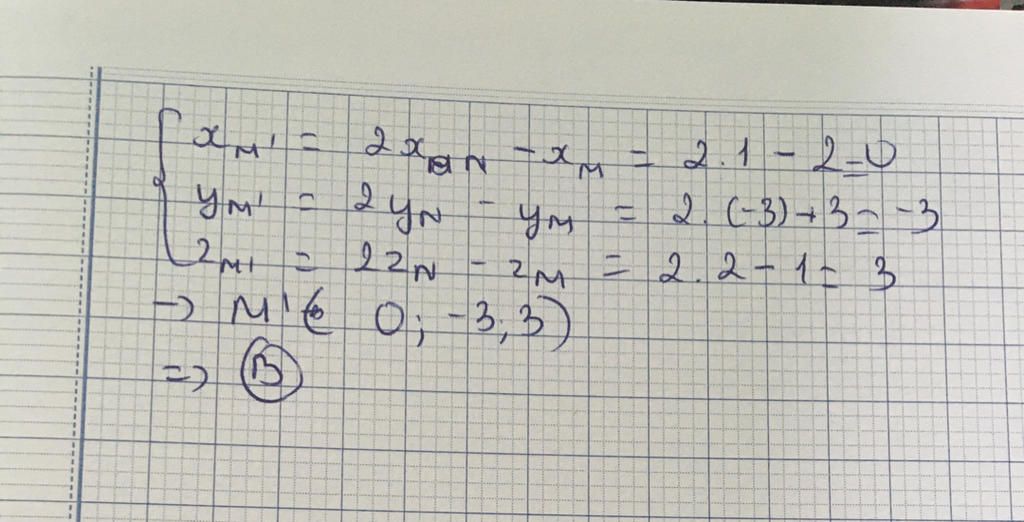 { x_M' = 2x_N - x_M = 2.1 - 2 = 0
y_M' = 2y_N - y_M = 2.(-3) + 3 = -3
z_M' = 2z_N - z_M = 2.2 - 1 = 3
→ M'( 0; -3; 3)
=> B